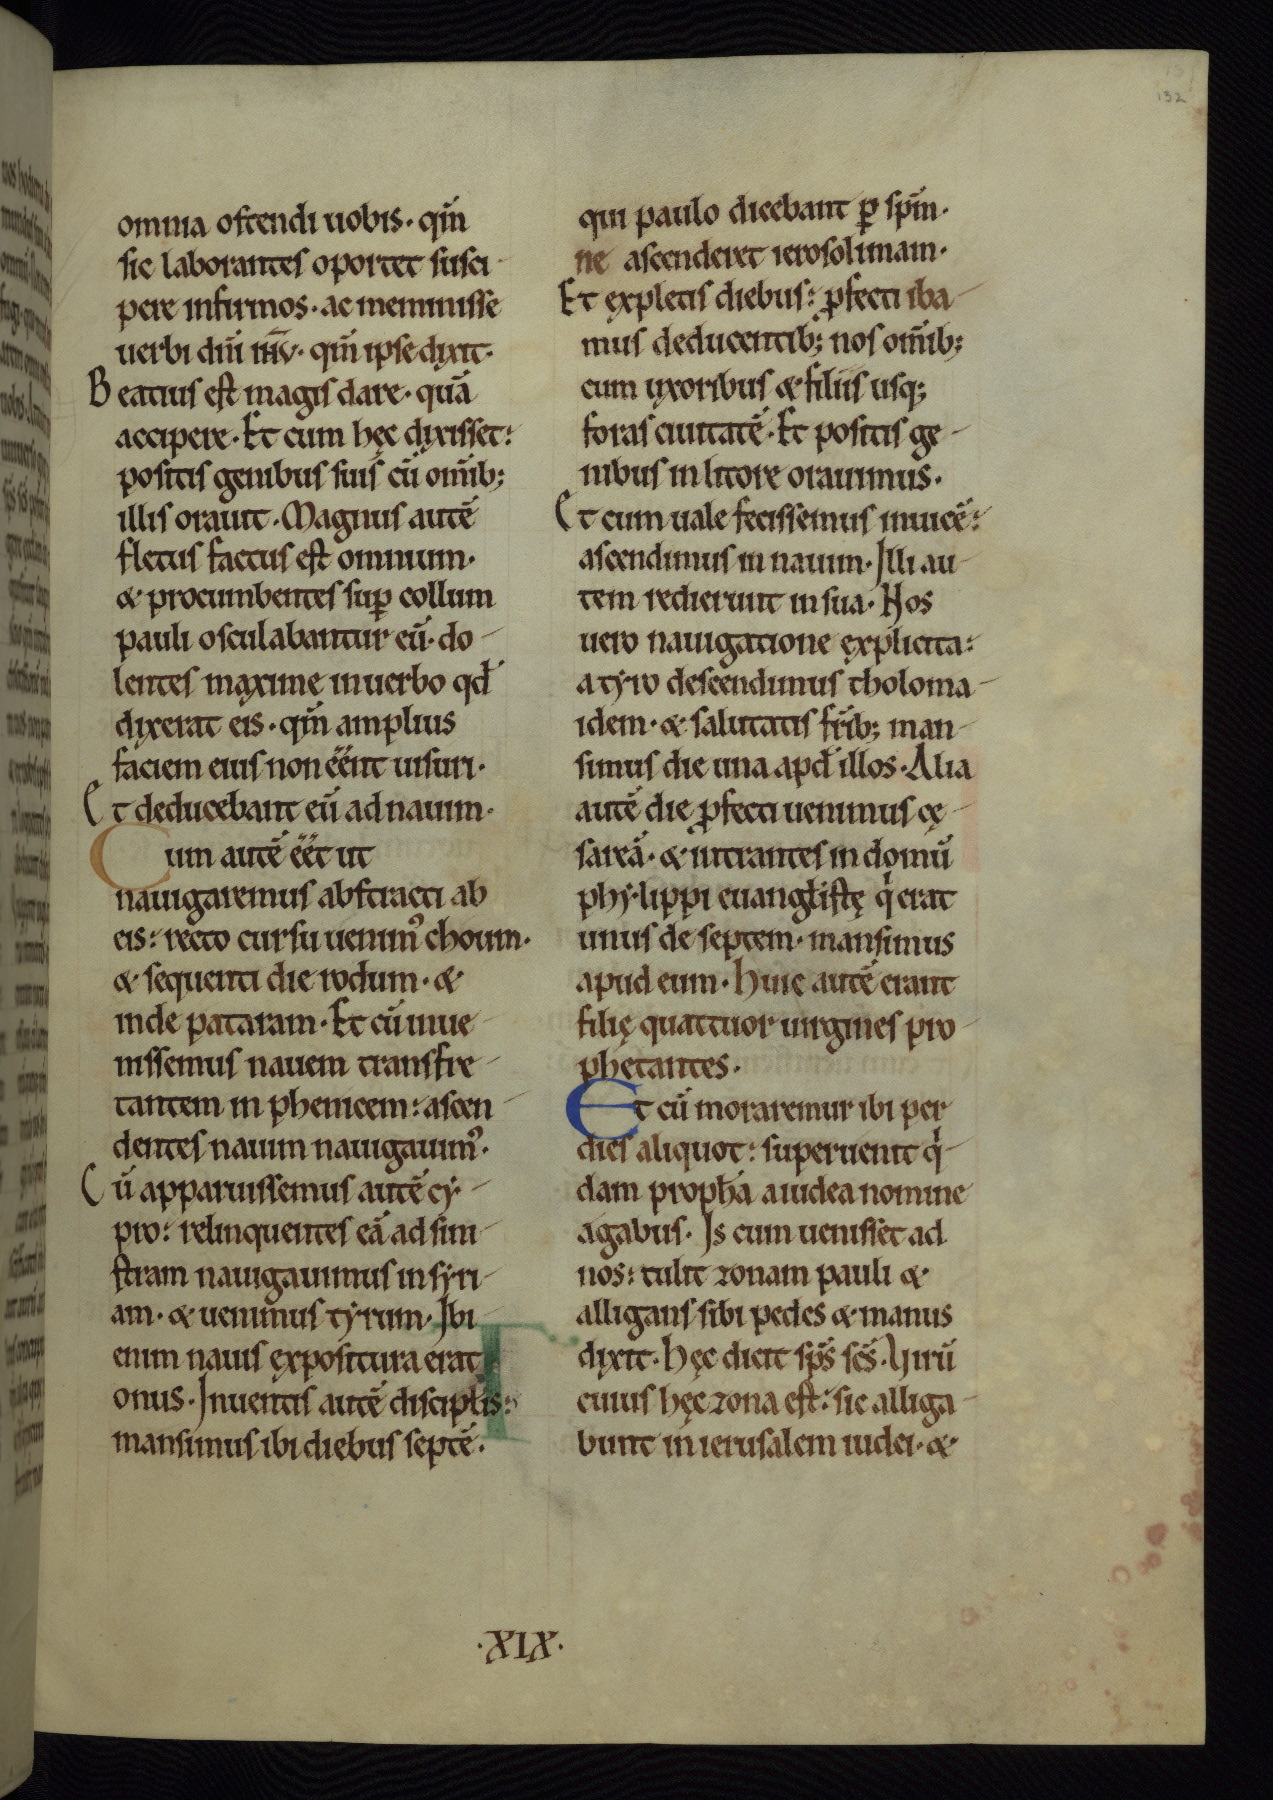 132
omnia ostendi uobis. qm̄
sic laborantes oportet susci
pere infirmos. ac meminisse
uerbi dn̄i ih̄v. qm̄ ipse dixit.
Beatius est magis dare. quā
accipere. Et cum hęc dixisset:
positis genibus suis cū om̄ib;
illis orauit. Magnus autē
fletus factus est omnium.
& procumbentes sup̲ collum
pauli osculabantur eū. do-
lentes maxime in uerbo qd̄
dixerat eis. qm̄ amplius
faciem eius non ēēnt uisuri.
Et deducebant eū ad nauim.
Cum autē ēēt ut
nauigaremus abstracti ab
eis: recto cursu uenim᾽ choum.
& sequenti die rodum. &
inde pataram. Et cū inue-
nissemus nauem transfre-
tantem in phenicem: ascen-
dentes nauim nauigauim᾽.
Cū apparuissemus autē cy-
pro: relinquentes eā ad sini-
stram nauigauimus in syri-
am. & uenimus tyrum. Ibi
enim nauis exposItura erat
onus. Inuentis autē discipl̄is:
mansimus ibi diebus septē.
qui paulo dicebant p̲ sp̄m.
ne ascenderet ierosolimam.
Et expletis diebus: ꝓfecti iba-
mus deducentib; nos om̄ib;
cum uxoribus & filiis usq;
foras ciuitatē. Et positis ge-
nibus in litore orauimus.
Et cum uale fecissemus inuicē:
ascendimus in nauim. Illi au-
tem redierunt in sua. Nos
uero nauigatione explicita:
a tyro descendimus tholoma-
idem. & salutatis fr̄ib; man-
simus die una apd̄ illos. Alia
autē die ꝓfecti uenimus cę-
sareā. & intrantes in domū
phylippi euangl̄istę q̇ erat
unus de septem. mansimus
apud eum. Huic autē erant
filię quattuor uirgines pro-
phetantes.
Et cū moraremur ibi per
dies aliquot: superuenit q̇-
dam proph̄a a iudea nomine
agabus. Is cum uenisset ad
nos: tulit zonam pauli &
alligans sibi pedes & manus
dixit. Hęc dicit sp̄s sc̄s. Uirū
cuius hęc zona est: sic alliga-
bunt in ierusalem iudei. &
.XIX.